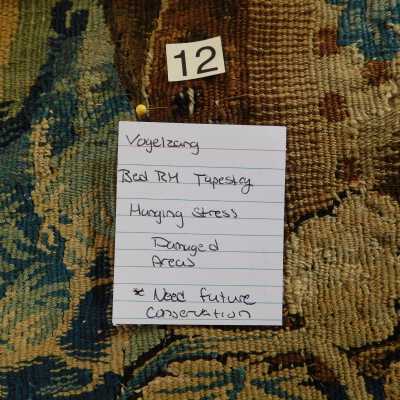 12
Vogelzang
Bed RM Tapestry
Hanging Stress
Damaged
Areas
* Need future
conservation